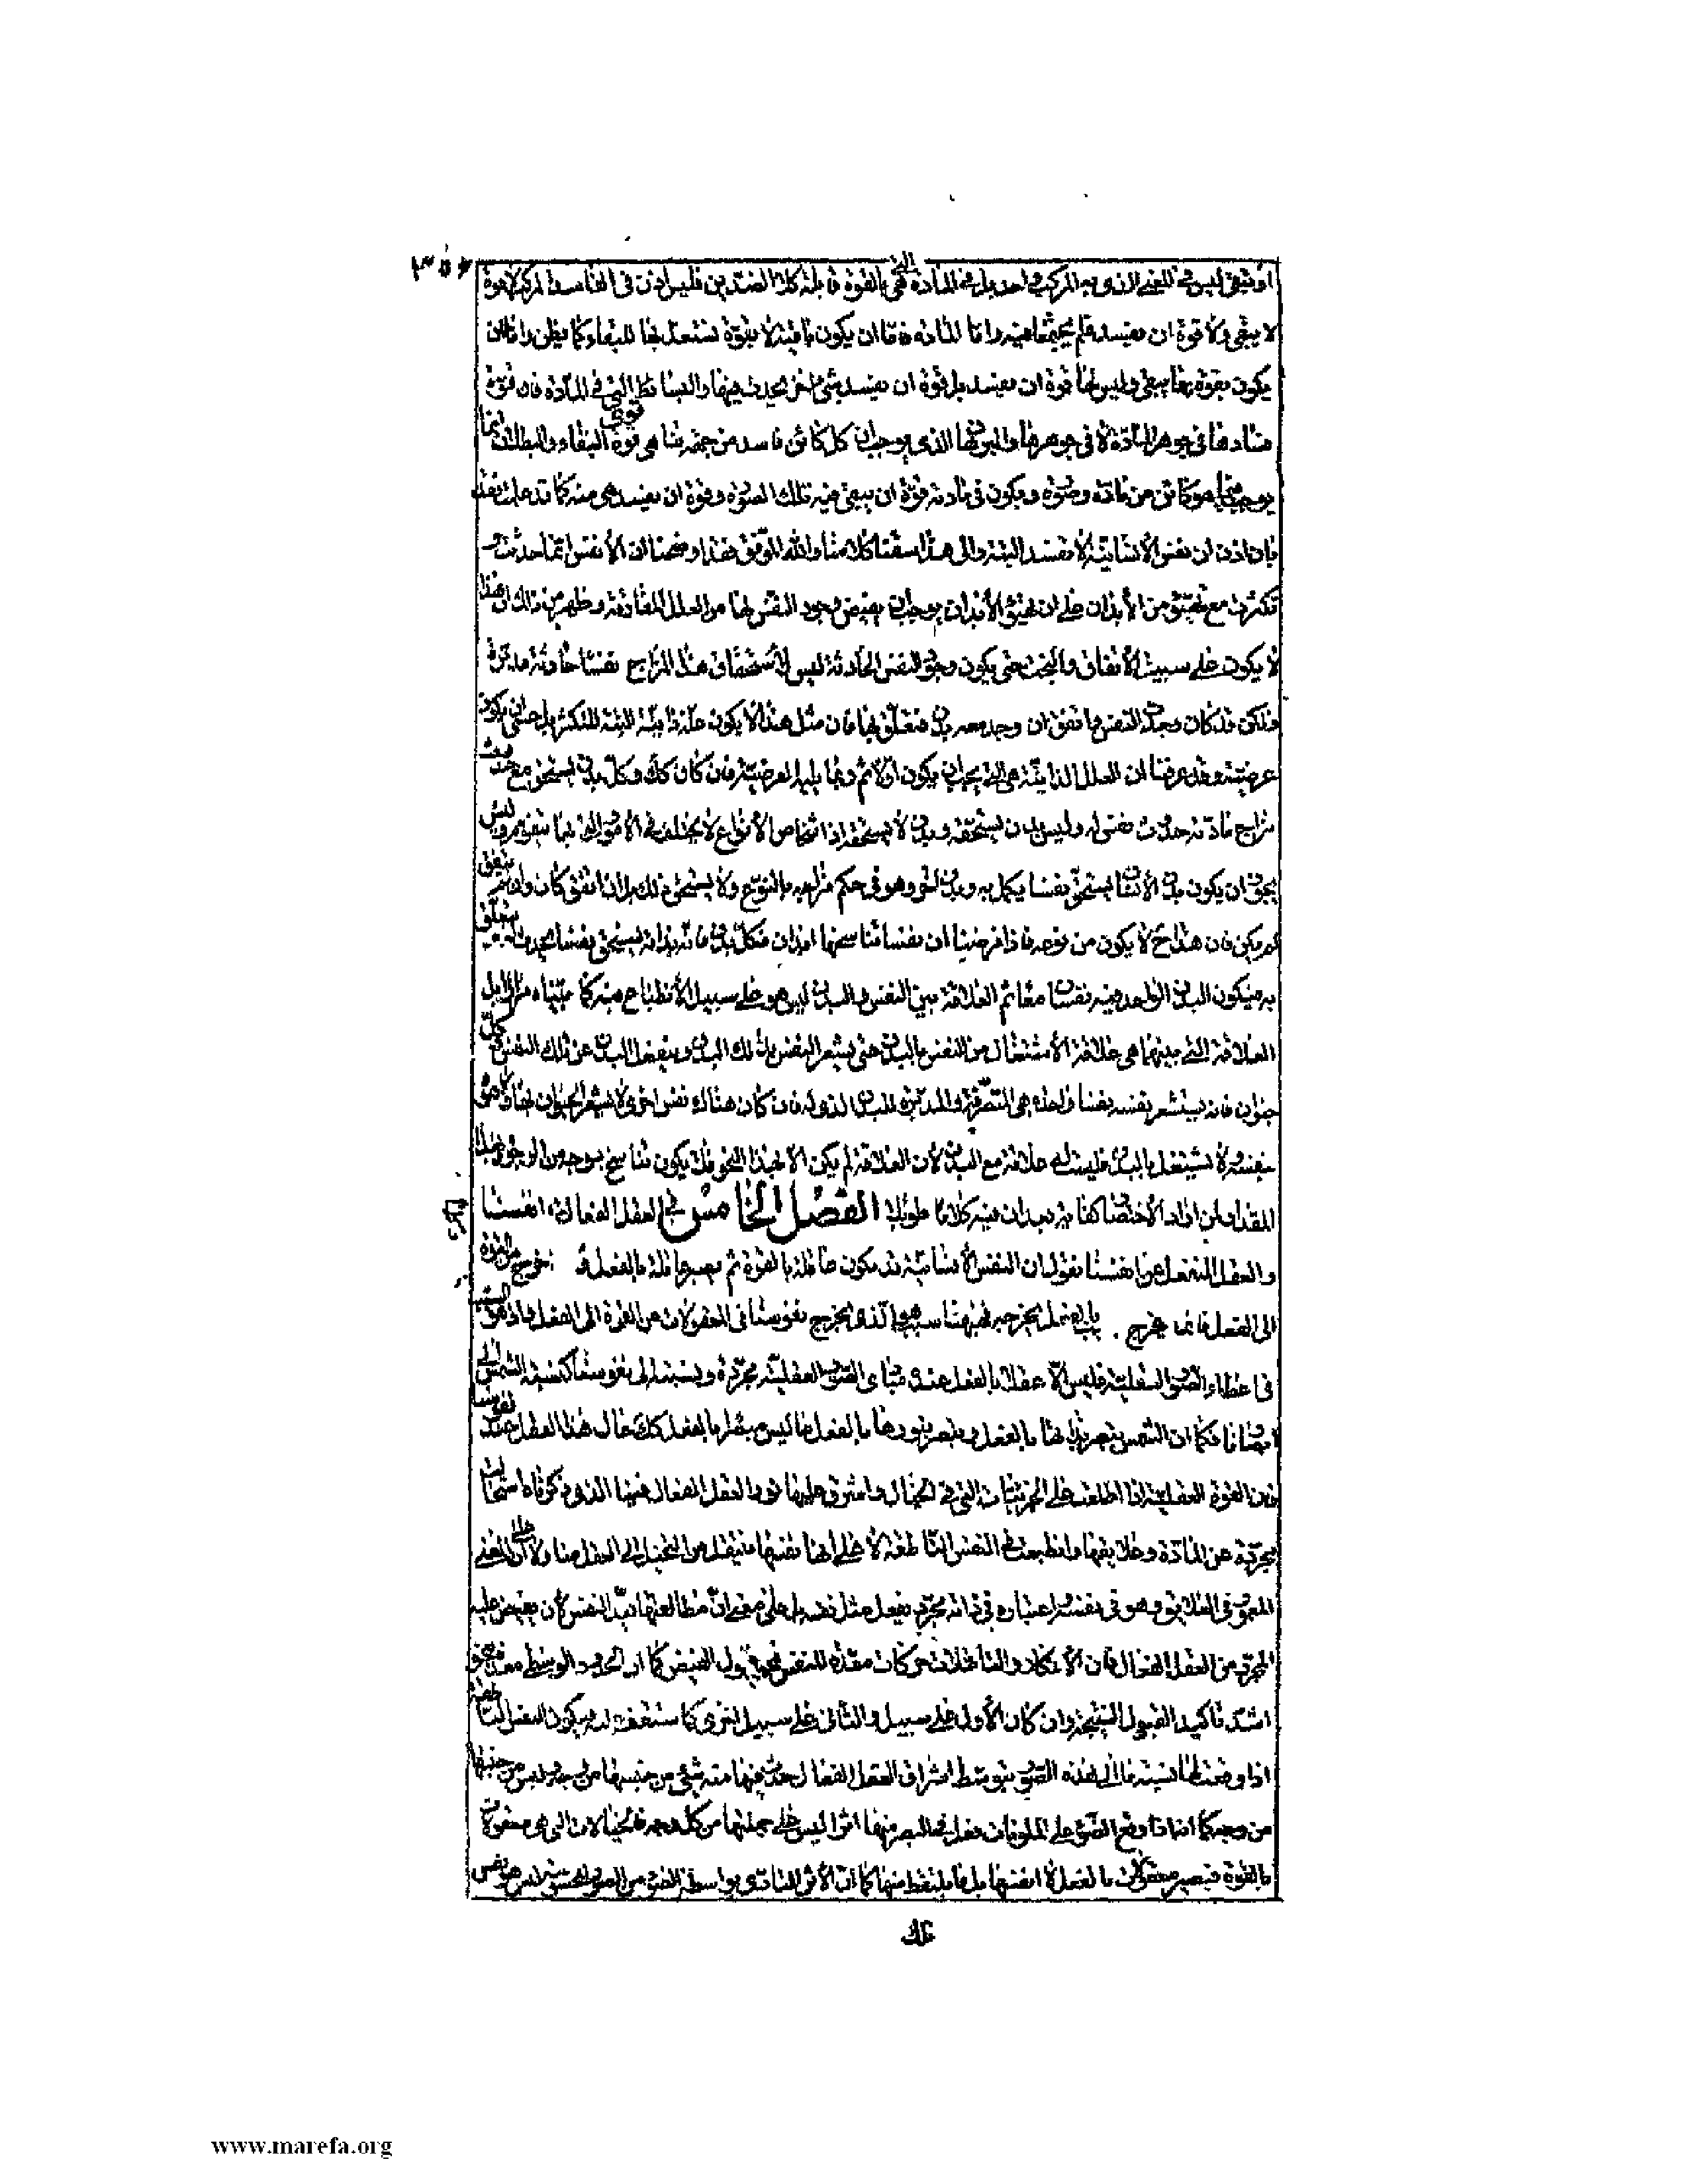 ٣٥٦
او تبقى ليس في المعنى الذي به المركب واحد بل في المادة التي هي بالقوة قابلة كلا الضدين فليس اذن في الفاسد المركب لا قوة
لا يبقى ولا قوة ان يفسد فلم يجتمعا فيه واما المادة فاما ان يكون باقية لا بقوة تستعد بها للبقاء كما يظن واما ان
يكون بقوة بها يبقى وليس لها قوة ان يفسد بل قوة ان يفسد شئ اخر يحدث فيها والبسائط التي في المادة فان قوة
فسادها في جوهر المادة لا في جوهرها والبرهان الذي يوجب ان كل كائن فاسد من جهة تناهي قوتي البقاء والبطلان انما
يوجب فيما هو كائن من مادة وصورة ويكون في مادته قوة ان يبقى فيه تلك الصورة وقوة ان يفسد هي منه كما قد علمت فقد
بان اذن ان نفس الانسانية لا تفسد البتة والى هذا سقنا كلامنا والله الموفق فقد اوضحنا ان الانفس انما حدثت و
تكثرت مع تهيؤ من الابدان على ان تهيؤ الابدان يوجب ان يفيض وجود النفس لها من العلل المفارقة وظهر من ذلك ان هذا
لا يكون على سبيل الاتفاق والبخت حتى يكون وجود النفس الحادثة ليس لاستحقاق هذا المزاج نفسا حادثة مدبرة
ولكن قد كان وجدت النفس واتفق ان وجد معه بدن فتعلق بها فان مثل هذا لا يكون علة ذاتية البتة للتكثر بل عسى ان يكون
عرضية وقد عرفنا ان العلل الذاتية هي التي يجب ان يكون اولا ثم ربما يليها العرضية فان كان كك وكل بدن يستحق مع حدوث
مزاج مادته حدوث نفس له وليس بدن يستحقه وبدن لا يستحقه اذ اشخاص الانواع لا يختلف في الامور التي بها يتقوم وليس
يجوز ان يكون بدن الانسان يستحق نفسا يكمل به وبدن اخر وهو في حكم مزاجه بالنوع ولا يستحق ذلك بل ان اتفق كان وان لم يتفق
لم يكن فان هذا ح لا يكون من نوعه فاذا فرضنا ان نفسا تناسخها ابدان فكل بدن فانه بذاته يستحق نفسا يحدث له ويتعلق
به فيكون البدن الواحد فيه نفسان معا ثم العلاقة بين النفس والبدن ليس هو على سبيل الانطباع فيه كما بيناه مرارا بل
العلاقة التي بينهما هي علاقة الاشتغال من النفس بالبدن حتى يشعر النفس بذلك البدن وينفعل البدن عن تلك النفس وكل
حيوان فانه يستشعر نفسه نفسا واحدة هي المتصرفة والمدبرة للبدن الذي له فان كان هناك نفس اخرى لا يشعر الحيوان بها ولا هو
بنفسه ولا تشتغل بالبدن فليست له علاقة مع البدن لان العلاقة لم يكن الا بهذا النحو فلا يكون تناسخ بوجه من الوجوه وبهذا
المقدار لمن اراد الاختصار كفاية بعد ان فيه كلاما طويلا الفصل الخامس في العقل الفعال في انفسنا
والعقل المنفعل عن انفسنا نقول ان النفس الانسانية قد يكون عاقلة بالقوة ثم يصير عاقلة بالفعل و خرج من القوة
الى الفعل فانما يخرج بالفعل يخرجه فههنا سبب هو الذي يخرج نفوسنا في المعقولات من القوة الى الفعل واذ هو السبب
في اعطاء الصور العقلية فليس الا عقلا بالفعل عنده مبادي الصور العقلية مجردة ونسبته الى نفوسنا كنسبة الشمس الى
ابصارنا فكما ان الشمس يبصر بذاتها بالفعل ويبصر بنورها بالفعل ما ليس مبصرا بالفعل كك حال هذا العقل عند نفوسنا
فان القوة العقلية اذا اطلعت على الجزئيات التي في الخيال واشرق عليها نور العقل الفعال فينا الذي ذكرناه استحالت
مجردة عن المادة وعلائقها وانطبعت في النفس الناطقة لا على انها نفسها ينتقل من التخيل الى العقل منا ولا على ان المعنى
المغمور في العلائق وهو في نفسه واعتباره في ذاته مجرد يفعل مثل نفسه بل على معنى ان مطالعتها تعد النفس لان يفيض عليه
المجرد من العقل الفعال فان الافكار والتأملات حركات معدة للنفس نحو قبول الفيض كما ان الحدود الوسطى معدة بنحو
اشد تاكيدا لقبول النتيجة وان كان الاول على سبيل والثاني على سبيل اخرى كما ستقف عليه فيكون النفس الناطقة
اذا وقعت لها نسبة ما الى هذه الصور بتوسط اشراق العقل الفعال حدث فيها منه شئ من جنسها من وجه وليس من جنسها
من وجه كما انه اذا وقع الضوء على الملونات فعل في البصر منها اثرا ليس على جملتها من كل وجه فالخيالات التي هي معقولات
بالقوة فيصير معقولات بالفعل لا انفسها بل ما يلتقط منها كما ان الاثر المتادي بواسطة الضوء من الصور المحسوسة ليس هو نفس
تلك
www.marefa.org